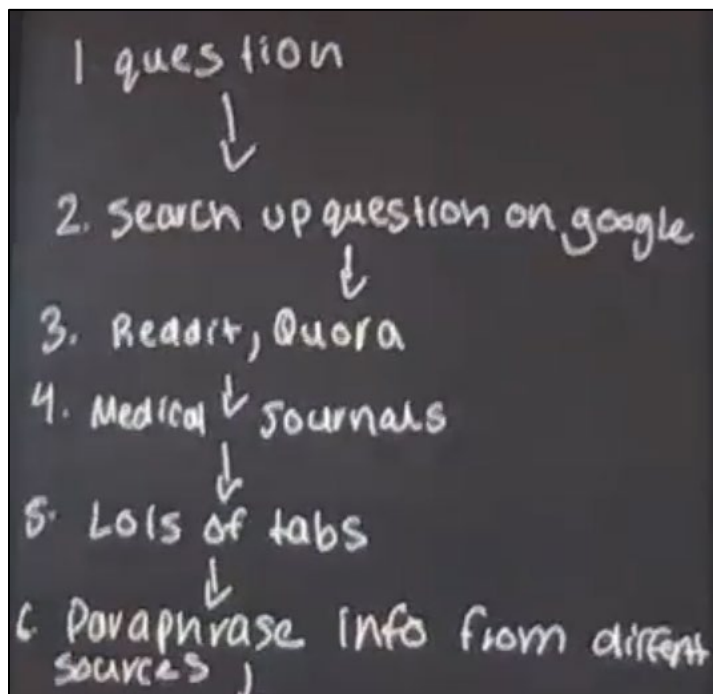 1 question
2. Search up question on google
3. Reddit, Quora
4. Medical Journals
5. Lots of tabs
6. Paraphrase info from different
sources